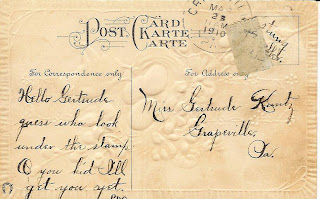 POST CARD
KARTE
CARTE
MAY
23
1910
For Correspondence only
For Address only
Hello Gertrude
guess who look
under the stamp
O you kid Ill
get you yet.
Miss Gertrude
Grapeville,
Pa.